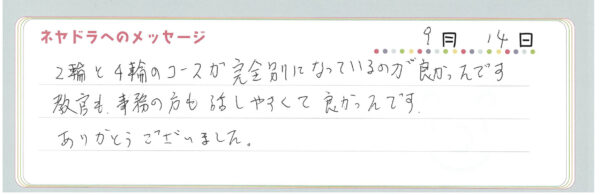 ネヤドラへのメッセージ
9月 14日
2輪と4輪のコースが完全別になっているのが良かったんです
教官も、事務の方も話しやすくて良かったんです。
ありがとうございました。